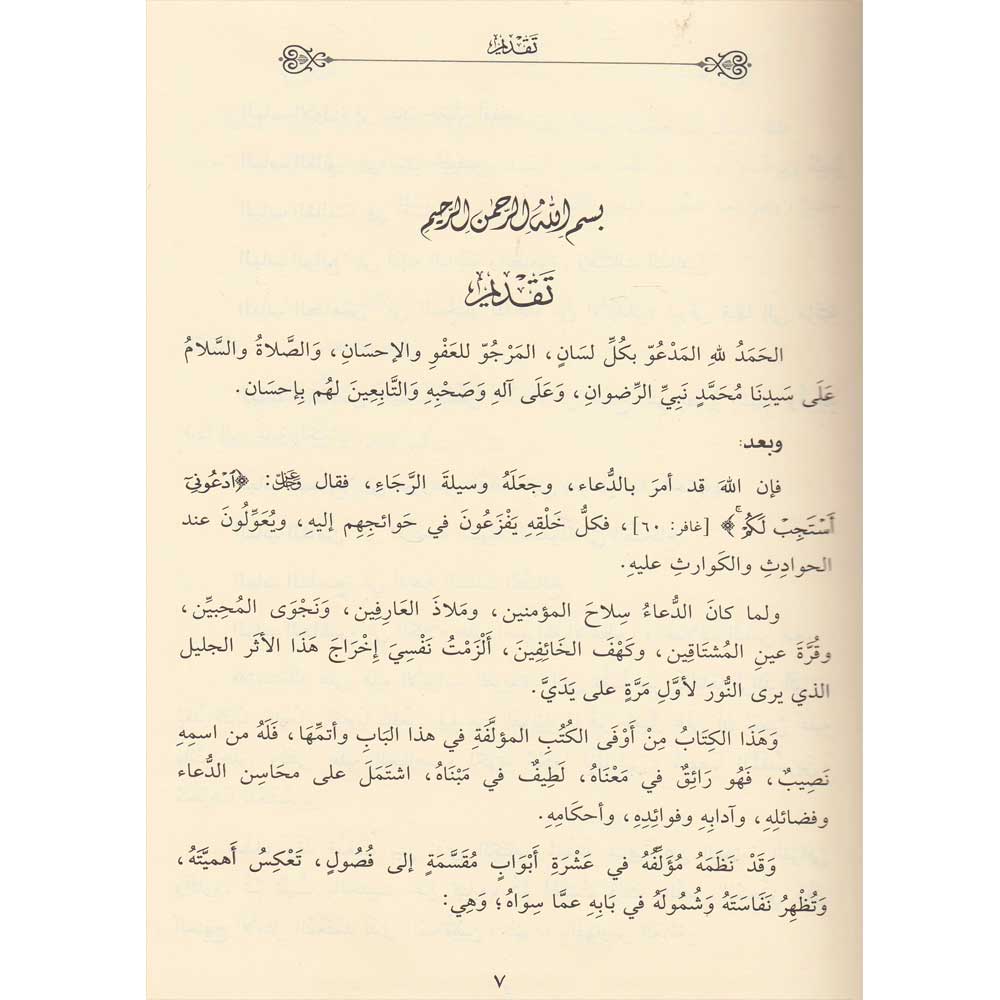 تَقْدِيم
بسم الله الرحمن الرحيم
تَقْدِيم
الحَمَدُ للهِ المَدْعُوّ بكُلِّ لسَانٍ، المَرْجُوّ للعَفْوِ والإحسَانِ، وَالصَّلاةُ والسَّلامُ
عَلَى سَيدِنَا مُحَمَّدٍ نَبِيِّ الرِّضوانِ، وَعَلَى آلهِ وَصَحْبِهِ وَالتَّابِعِينَ لهُم بِإحسَان.
وبعد:
فإن اللهَ قد أمرَ بالدُّعاء، وجعَلَهُ وسيلةَ الرَّجَاءِ، فقال عَزَّ وَجَلَّ: ﴿ٱدْعُونِىٓ
أَسْتَجِبْ لَكُمْ ۚ﴾ [غافر: ٦٠]، فكلُّ خَلْقِهِ يَفْزَعُونَ في حَوائجِهِم إليهِ، ويُعَوِّلُونَ عند
الحوادِثِ والكَوارثِ عليهِ.
ولما كانَ الدُّعاءُ سِلاحَ المؤمنين، ومَلاذَ العَارِفِين، وَنَجْوَى المُحِبيِّن،
وقُرَّةَ عينِ المُشتَاقِين، وكَهْفَ الخَائِفِينَ، أَلْزَمْتُ نَفْسِيَ إخْرَاجَ هَذَا الأثَر الجليل
الذي يرى النُّورَ لأوَّلِ مَرَّةٍ على يَدَيَّ.
وَهَذَا الكِتَابُ مِنْ أَوْفَى الكُتُبِ المؤلَّفَةِ في هذا البَابِ وأتمِّهَا، فَلَهُ من اسمِهِ
نَصِيبٌ، فَهُو رَائِقٌ في مَعْنَاهُ، لَطِيفٌ في مَبْنَاهُ، اشتمَلَ على محَاسِن الدُّعاء
وفضائلِهِ، وآدابِهِ وفوائِدِهِ، وأحكَامِهِ.
وَقَدْ نَظَمَهُ مُؤَلِّفُهُ في عَشْرَةِ أَبْوَابٍ مُقَسَّمَةٍ إلى فُصُولٍ، تَعْكِسُ أَهميَّتَهُ،
وَتُظْهِرُ نَفَاسَتَهُ وَشُمُولَهُ في بَابِهِ عمَّا سِوَاهُ؛ وَهِيَ:
٧